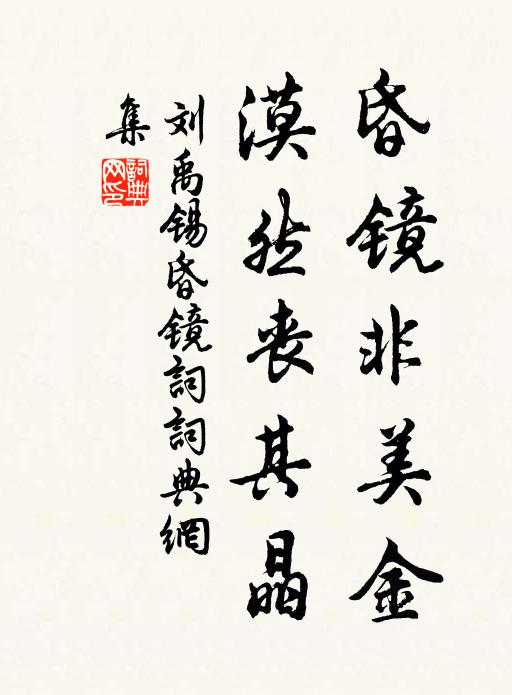 昏镜非美金
漠然丧其晶
刘禹锡昏镜詞詞典網
集
詞典网印